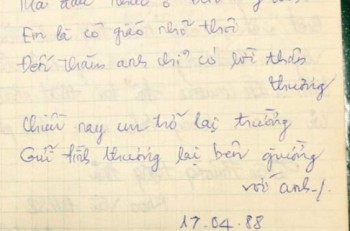 Em là cô giáo nhỏ thôi
Đến thăm anh chỉ có lời thân
thương
Chiều nay em trở lại trường
Gửi tình thương lại bên giường
với anh./.
17.04.88